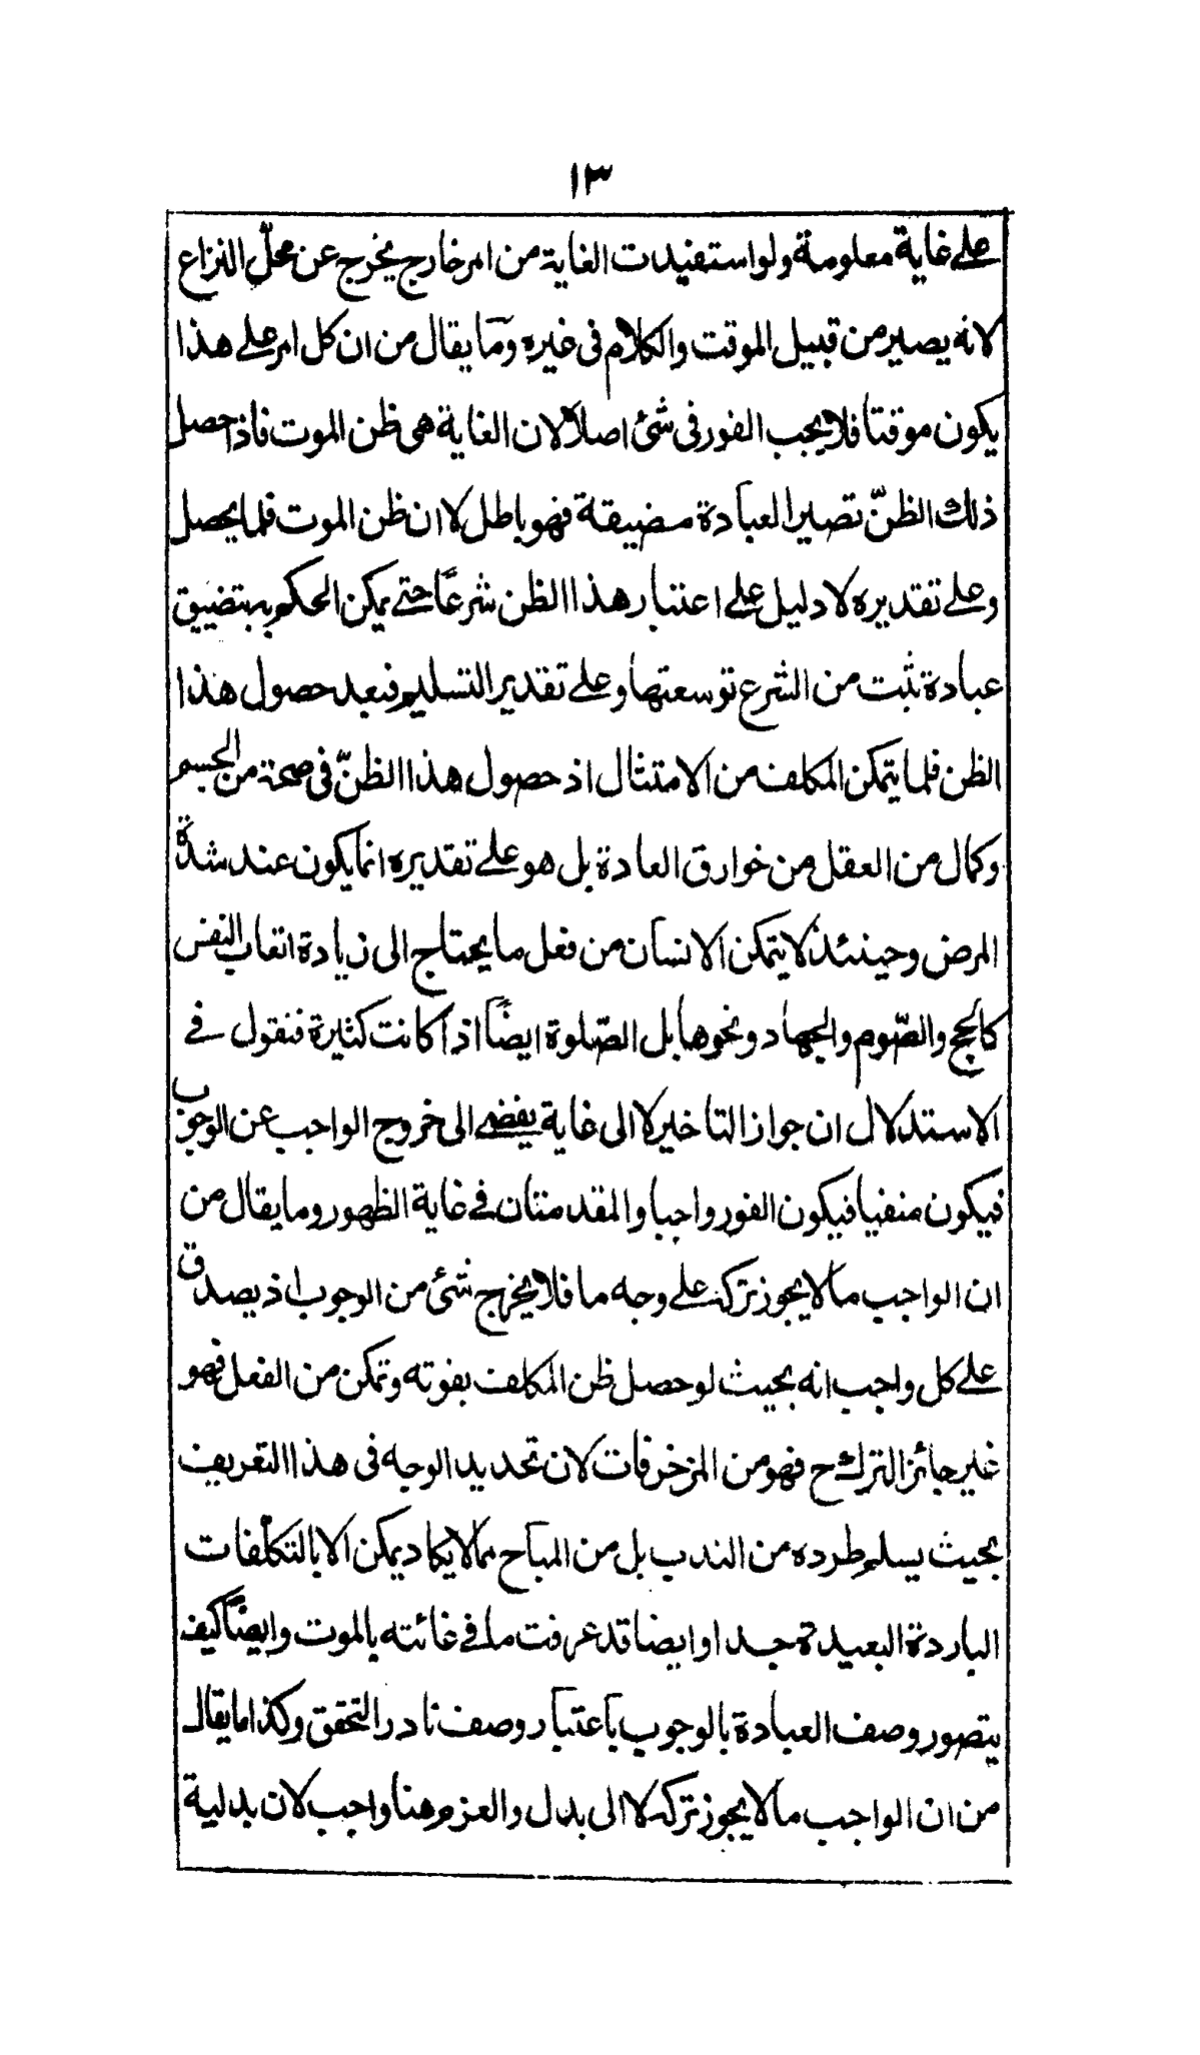 ١٣
على غاية معلومة ولو استفيدت الغاية من امر خارج يخرج عن محلّ النزاع
لانه يصير من قبيل الموقت والكلام فى غيره وما يقال من ان كل امر على هذا
يكون موقتا فلا يجب الفور فى شئ اصلا لان الغاية هى ظن الموت فاذا حصل
ذلك الظنّ تصير العبادة مضيقة فهو باطل لان ظن الموت قلما يحصل
وعلى تقديره لا دليل على اعتبار هذا الظن شرعًا حتى يمكن الحكم به بتضييق
عبادة ثبت من الشرع توسعتها وعلى تقدير التسليم فبعد حصول هذا
الظن قلما يتمكن المكلف من الامتثال اذ حصول هذا الظنّ فى صحة من الجسم
وكمال من العقل من خوارق العادة بل هو على تقديره انما يكون عند شدّة
المرض وحينئذ لا يتمكن الانسان من فعل ما يحتاج الى زيادة اتعاب النفس
كالحج والصّوم والجهاد ونحوها بل الصّلوة ايضًا اذا كانت كثيرة فنقول فى
الاستدلال ان جواز التاخير لا الى غاية يفضى الى خروج الواجب عن الوجوب
فيكون منفيا فيكون الفور واجبا والمقدمتان فى غاية الظهور وما يقال من
ان الواجب ما لا يجوز تركه على وجه ما فلا يخرج شئ من الوجوب اذ يصدق
على كل واجب انه بحيث لو حصل ظن المكلف بفوته وتمكن من الفعل فهو
غير جائز الترك ح فهو من المزخرفات لان تحديد الوجه فى هذا التعريف
بحيث يسلم طرده من الندب بل من المباح مما لا يكاد يمكن الا بالتكلّفات
الباردة البعيدة جدا وايضا قد عرفت ما فى غائته بالموت وايضًا كيف
يتصور وصف العبادة بالوجوب باعتبار وصف نادر التحقق وكذا ما يقال
من ان الواجب ما لا يجوز تركه لا الى بدل والعزم هنا واجب لان بدلية